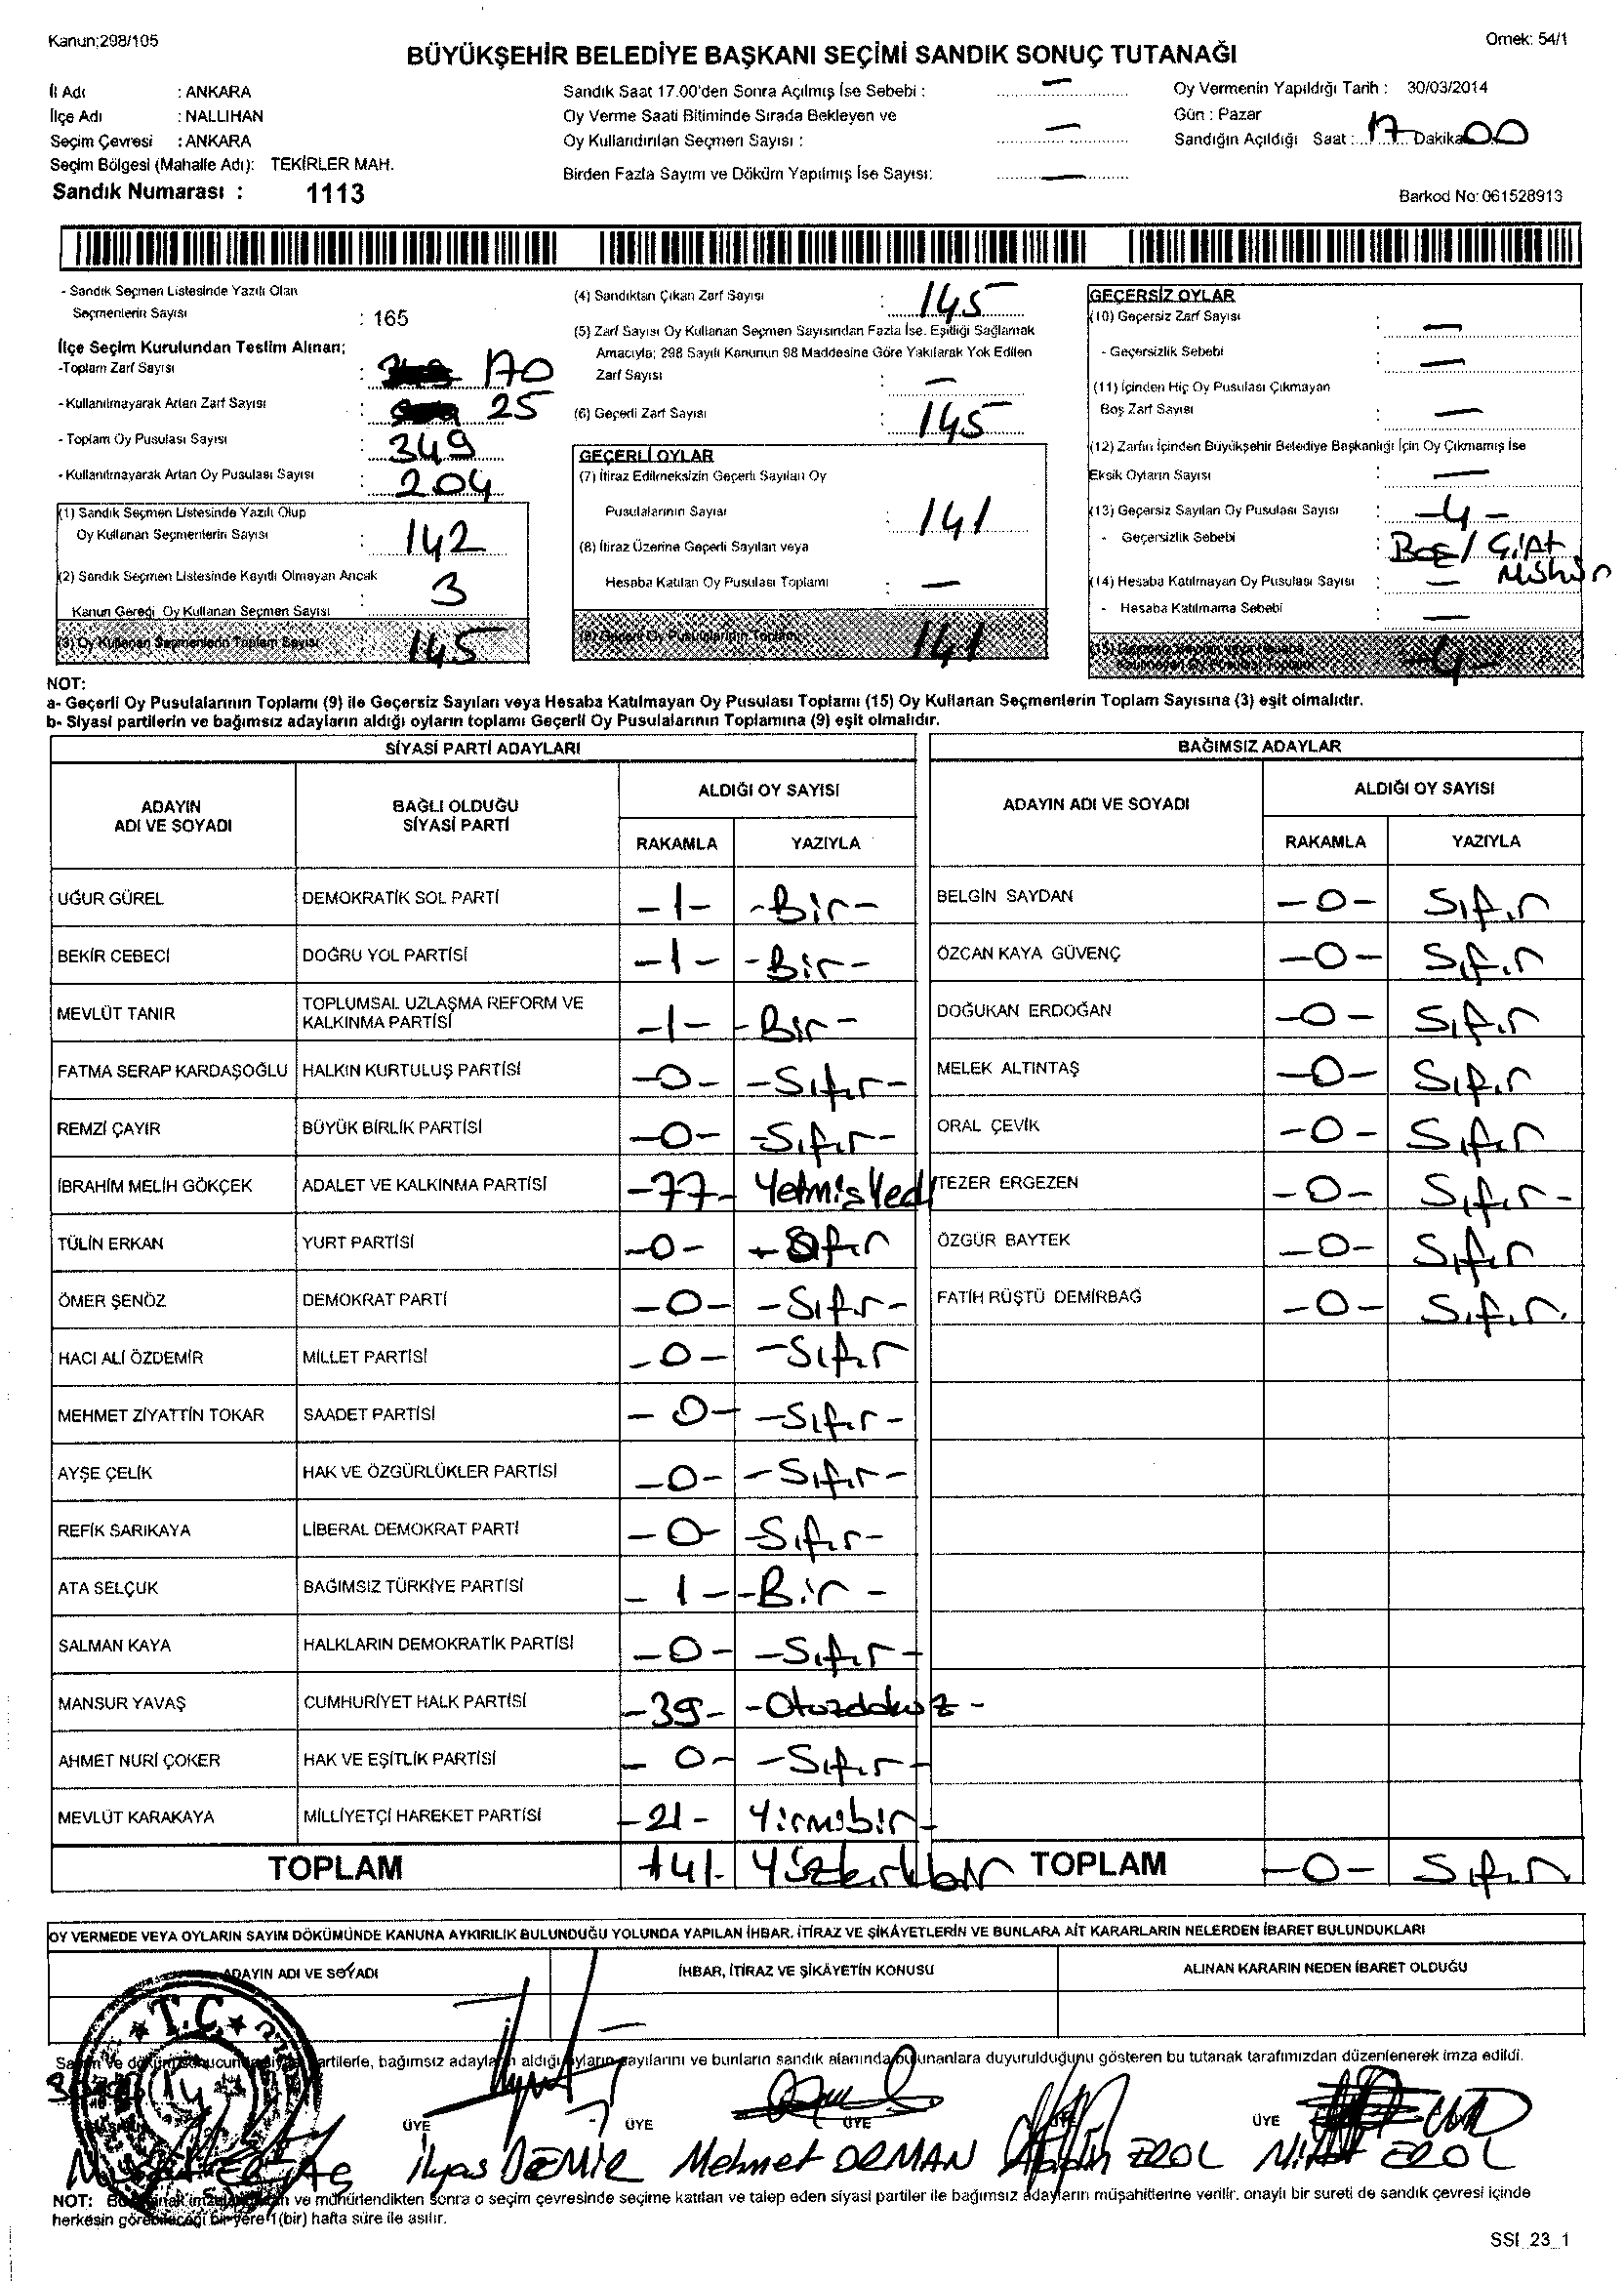 Kanun:298/105
Örnek: 54/1
BÜYÜKŞEHİR BELEDİYE BAŞKANI SEÇİMİ SANDIK SONUÇ TUTANAĞI
İl Adı : ANKARA
İlçe Adı : NALLIHAN
Seçim Çevresi : ANKARA
Seçim Bölgesi (Mahalle Adı): TEKİRLER MAH.
Sandık Numarası : 1113
Sandık Saat 17.00'den Sonra Açılmış İse Sebebi : —
Oy Verme Saati Bitiminde Sırada Bekleyen ve
Oy Kullandırılan Seçmen Sayısı : —
Birden Fazla Sayım ve Döküm Yapılmış İse Sayısı: —
Oy Vermenin Yapıldığı Tarih : 30/03/2014
Gün : Pazar
Sandığın Açıldığı Saat : 17 Dakika 00
Barkod No: 061528913
- Sandık Seçmen Listesinde Yazılı Olan
Seçmenlerin Sayısı : 165
İlçe Seçim Kurulundan Teslim Alınan;
-Toplam Zarf Sayısı : 170
- Kullanılmayarak Artan Zarf Sayısı : 25
- Toplam Oy Pusulası Sayısı : 349
- Kullanılmayarak Artan Oy Pusulası Sayısı : 204
(1) Sandık Seçmen Listesinde Yazılı Olup
Oy Kullanan Seçmenlerin Sayısı : 142
(2) Sandık Seçmen Listesinde Kayıtlı Olmayan Ancak
Kanun Gereği Oy Kullanan Seçmen Sayısı : 3
(3) Oy Kullanan Seçmenlerin Toplam Sayısı 145
(4) Sandıktan Çıkan Zarf Sayısı : 145
(5) Zarf Sayısı Oy Kullanan Seçmen Sayısından Fazla İse. Eşitliği Sağlamak
Amacıyla; 298 Sayılı Kanunun 98 Maddesine Göre Yakılarak Yok Edilen
Zarf Sayısı : —
(6) Geçerli Zarf Sayısı : 145
GEÇERLİ OYLAR
(7) İtiraz Edilmeksizin Geçerli Sayılan Oy
Pusulalarının Sayısı : 141
(8) İtiraz Üzerine Geçerli Sayılan veya
Hesaba Katılan Oy Pusulası Toplamı : —
(9) Geçerli Oy Pusulalarının Toplamı 141
GEÇERSİZ OYLAR
(10) Geçersiz Zarf Sayısı : —
- Geçersizlik Sebebi : —
(11) İçinden Hiç Oy Pusulası Çıkmayan
Boş Zarf Sayısı : —
(12) Zarfın İçinden Büyükşehir Belediye Başkanlığı İçin Oy Çıkmamış İse
Eksik Oyların Sayısı : —
(13) Geçersiz Sayılan Oy Pusulası Sayısı : -4-
- Geçersizlik Sebebi : Boş/
(14) Hesaba Katılmayan Oy Pusulası Sayısı : —
- Hesaba Katılmama Sebebi : —
(15) Geçersiz Sayılan veya Hesaba
Katılmayan Oy Pusulası Toplamı -4-
NOT:
a- Geçerli Oy Pusulalarının Toplamı (9) ile Geçersiz Sayılan veya Hesaba Katılmayan Oy Pusulası Toplamı (15) Oy Kullanan Seçmenlerin Toplam Sayısına (3) eşit olmalıdır.
b- Siyasi partilerin ve bağımsız adayların aldığı oyların toplamı Geçerli Oy Pusulalarının Toplamına (9) eşit olmalıdır.
SİYASİ PARTİ ADAYLARI
ADAYIN ADI VE SOYADI
BAĞLI OLDUĞU SİYASİ PARTİ
ALDIĞI OY SAYISI
RAKAMLA YAZIYLA
UĞUR GÜREL DEMOKRATİK SOL PARTİ -1- -Bir-
BEKİR CEBECİ DOĞRU YOL PARTİSİ -1- -Bir-
MEVLÜT TANIR TOPLUMSAL UZLAŞMA REFORM VE KALKINMA PARTİSİ -1- -Bir-
FATMA SERAP KARDAŞOĞLU HALKIN KURTULUŞ PARTİSİ -0- -Sıfır-
REMZİ ÇAYIR BÜYÜK BİRLİK PARTİSİ -0- -Sıfır-
İBRAHİM MELİH GÖKÇEK ADALET VE KALKINMA PARTİSİ -77- Yetmişyedi
TÜLİN ERKAN YURT PARTİSİ -0- - Sıfır
ÖMER ŞENÖZ DEMOKRAT PARTİ -0- -Sıfır-
HACI ALİ ÖZDEMİR MİLLET PARTİSİ -0- -Sıfır
MEHMET ZİYATTİN TOKAR SAADET PARTİSİ -0- -Sıfır-
AYŞE ÇELİK HAK VE ÖZGÜRLÜKLER PARTİSİ -0- -Sıfır-
REFİK SARIKAYA LİBERAL DEMOKRAT PARTİ -0- -Sıfır-
ATA SELÇUK BAĞIMSIZ TÜRKİYE PARTİSİ -1- -Bir-
SALMAN KAYA HALKLARIN DEMOKRATİK PARTİSİ -0- -Sıfır-
MANSUR YAVAŞ CUMHURİYET HALK PARTİSİ -39- -Otuzdokuz-
AHMET NURİ ÇOKER HAK VE EŞİTLİK PARTİSİ -0- -Sıfır-
MEVLÜT KARAKAYA MİLLİYETÇİ HAREKET PARTİSİ -21- Yirmibir-
TOPLAM 141- Yüzkırkbir
BAĞIMSIZ ADAYLAR
ADAYIN ADI VE SOYADI
ALDIĞI OY SAYISI
RAKAMLA YAZIYLA
BELGİN SAYDAN -0- Sıfır
ÖZCAN KAYA GÜVENÇ -0- Sıfır
DOĞUKAN ERDOĞAN -0- Sıfır
MELEK ALTINTAŞ -0- Sıfır
ORAL ÇEVİK -0- Sıfır
TEZER ERGEZEN -0- Sıfır-
ÖZGÜR BAYTEK -0- Sıfır
FATİH RÜŞTÜ DEMİRBAĞ -0- Sıfır.
TOPLAM -0- Sıfır
OY VERMEDE VEYA OYLARIN SAYIM DÖKÜMÜNDE KANUNA AYKIRILIK BULUNDUĞU YOLUNDA YAPILAN İHBAR, İTİRAZ VE ŞİKÂYETLERİN VE BUNLARA AİT KARARLARIN NELERDEN İBARET BULUNDUKLARI
ADAYIN ADI VE SOYADI
İHBAR, İTİRAZ VE ŞİKÂYETİN KONUSU
ALINAN KARARIN NEDEN İBARET OLDUĞU
—
T.C.
Sayım ve döküm sonucunda siyasi partilerle, bağımsız adayların aldığı oyların sayılarını ve bunların sandık alanında bulunanlara duyurulduğunu gösteren bu tutanak tarafımızdan düzenlenerek imza edildi.
ÜYE ÜYE ÜYE ÜYE
İlyas DEMİR Mehmet ORMAN EROL EROL
NOT: Bu tutanak imzalandıktan ve mühürlendikten sonra o seçim çevresinde seçime katılan ve talep eden siyasi partiler ile bağımsız adayların müşahitlerine verilir. onaylı bir sureti de sandık çevresi içinde
herkesin görebileceği bir yere 1(bir) hafta süre ile asılır.
SSI_23_1